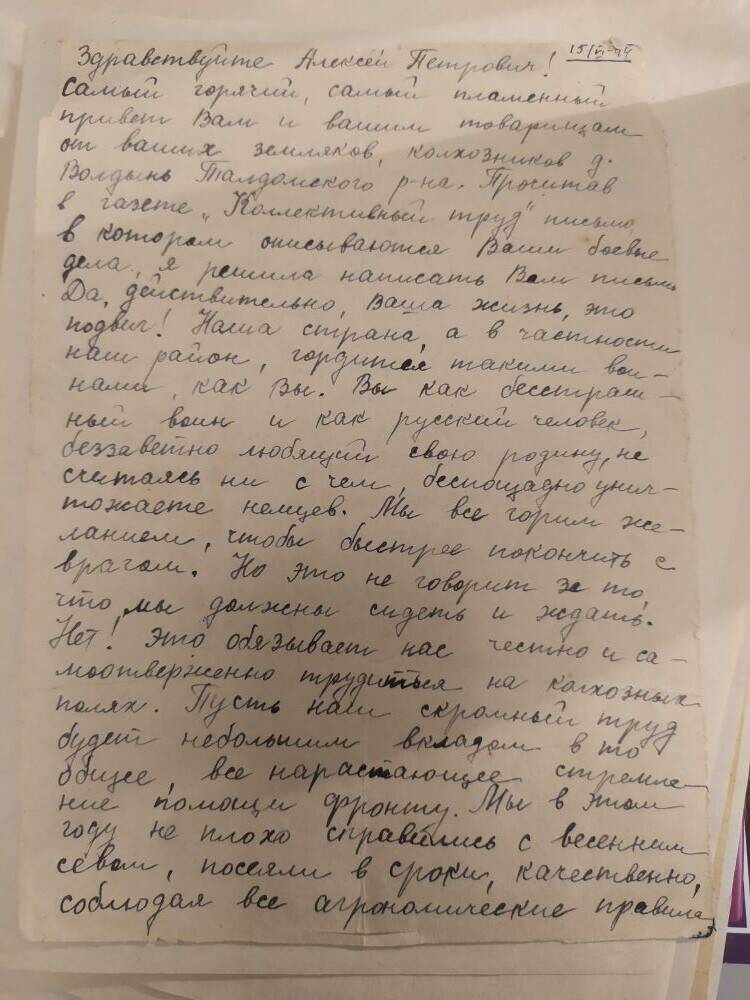 Здравствуйте Алексей Петрович! 15/VI-44
самый горячий, самый пламенный
привет Вам и вашим товарищам
от ваших земляков, колхозников д.
Волдынь Талдомского р-на. Прочитав
в газете „Коллективный труд" письмо,
в котором описываются Ваши боевые
дела, я решила написать Вам письмо
Да, действительно, Ваша жизнь, это
подвиг! Наша страна, а в частности
наш район, гордится такими вои-
нами, как Вы. Вы как бесстраш-
ный воин и как русский человек,
беззаветно любящий свою родину, не
считаясь ни с чем, беспощадно унич-
тожаете немцев. Мы все горим же-
ланием, чтобы быстрее покончить с
врагом. Но это не говорит за то,
что мы должны сидеть и ждать.
Нет! Это обязывает нас честно и са-
моотверженно трудиться на колхозных
полях. Пусть наш скромный труд
будет небольшим вкладом в то
общее, все нарастающее стремле-
ние помощи фронту. Мы в этом
году не плохо справились с весенним
севом, посеяли в сроки, качественно,
соблюдая все агрономические правила